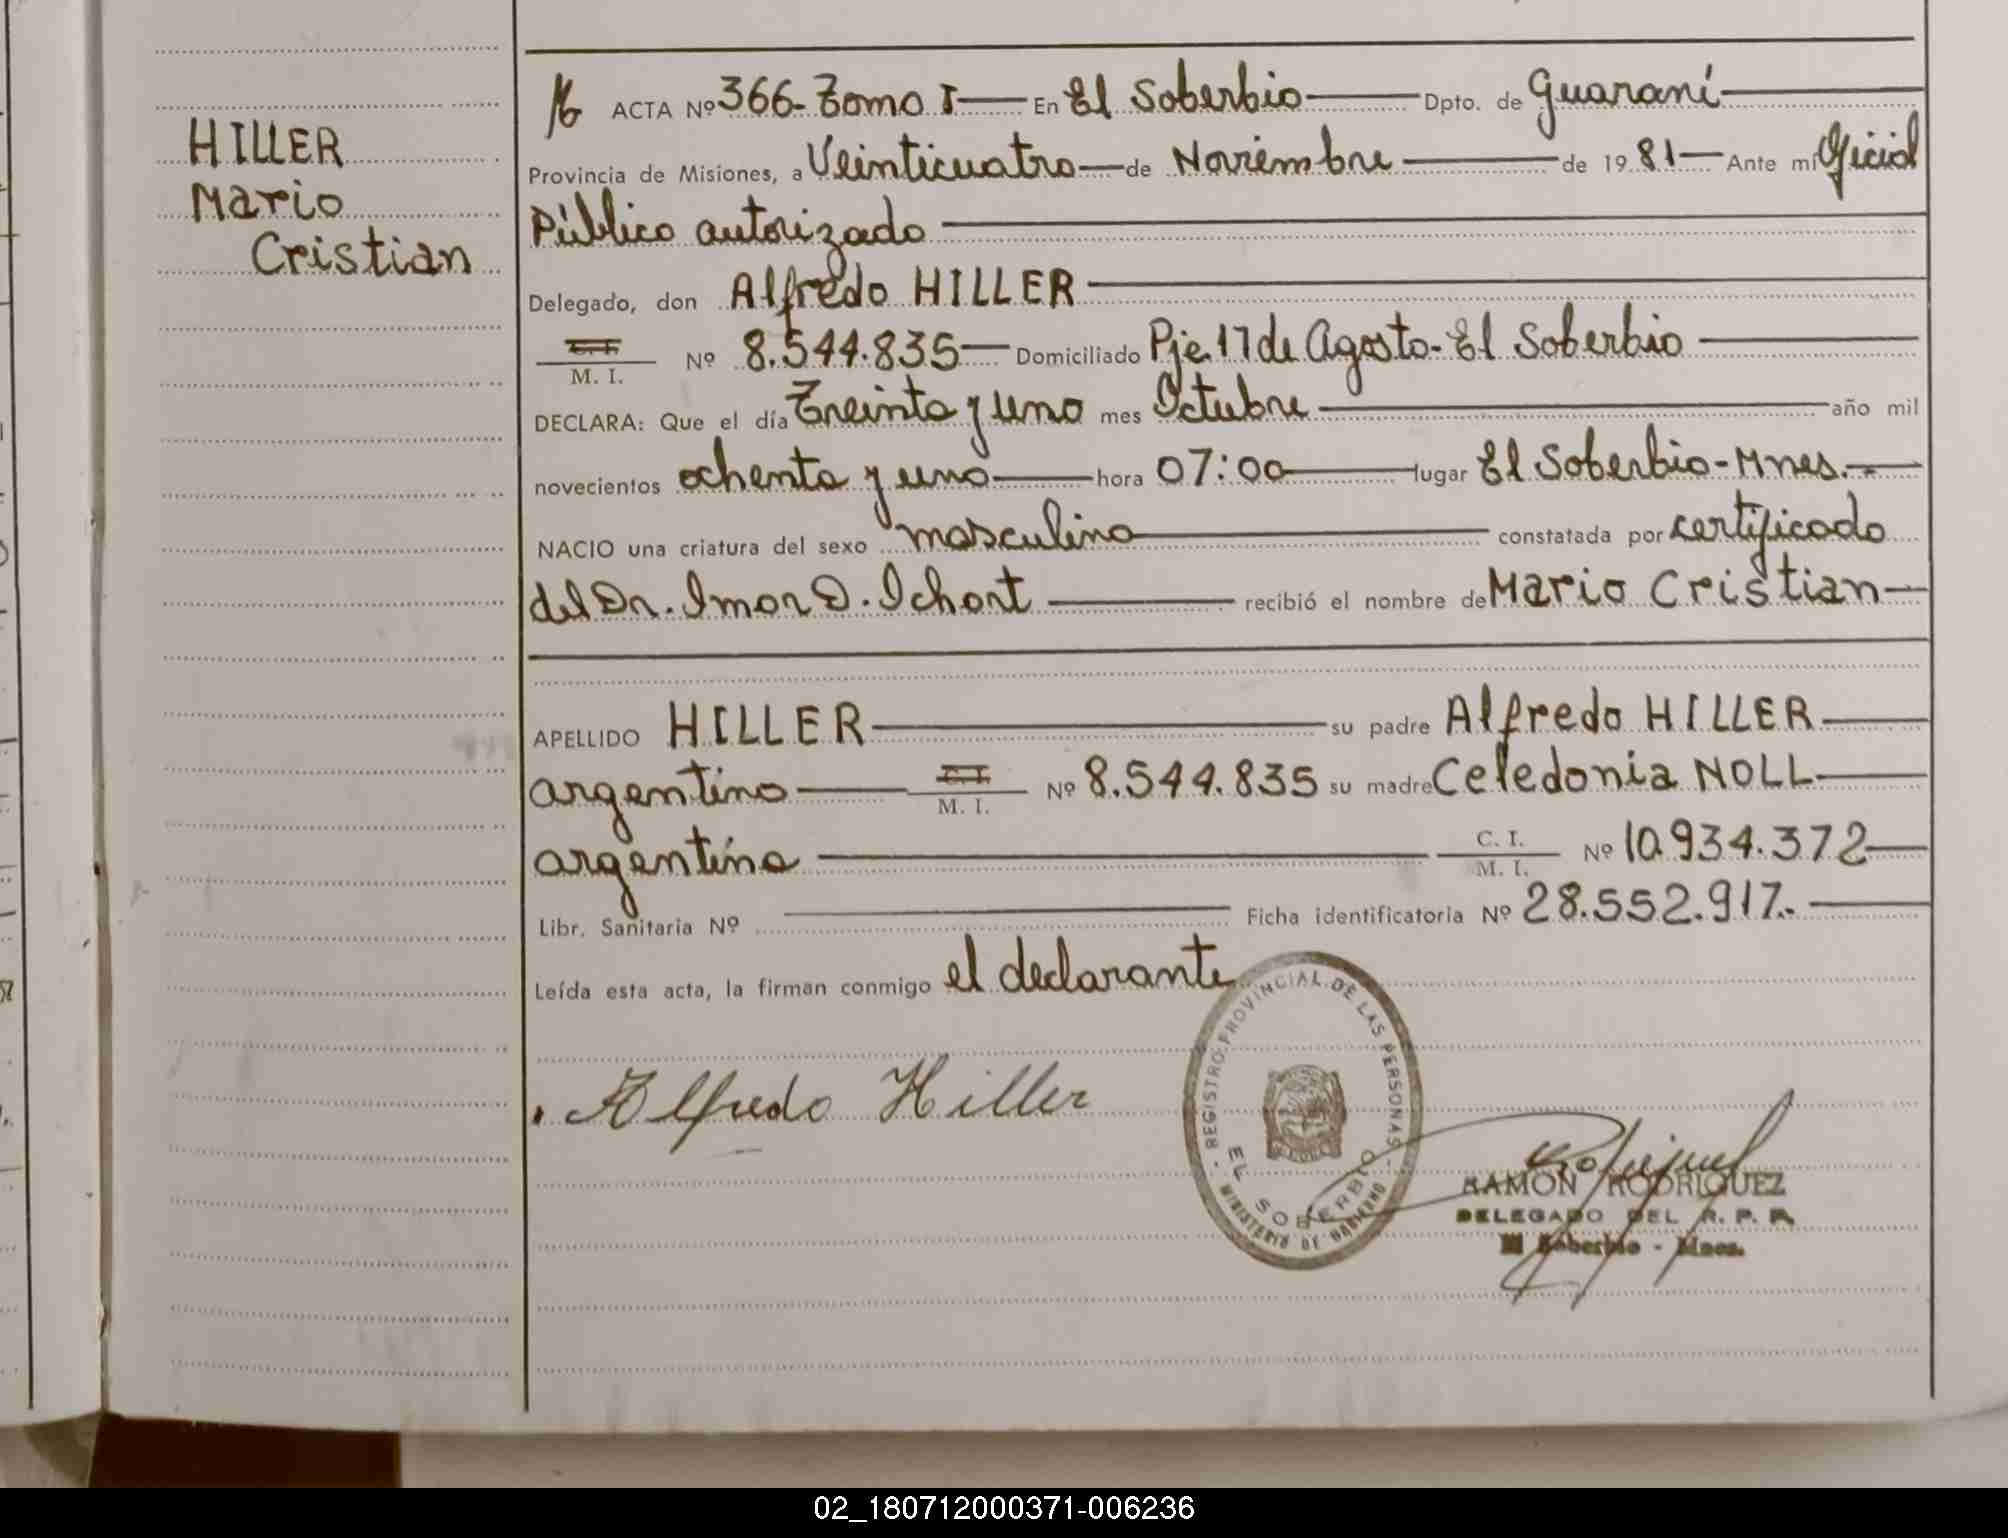 HILLER
Mario
Cristian
ACTA Nº 366-Tomo I En El Soberbio Dpto. de Guaraní
Provincia de Misiones, a Veinticuatro de Noviembre de 1981 Ante mí Oficial
Público autorizado
Delegado, don Alfredo HILLER
C. I.
M. I. Nº 8.544.835 Domiciliado Pje. 17 de Agosto - El Soberbio
DECLARA: Que el día Treinta y uno mes Octubre año mil
novecientos ochenta y uno hora 07:00 lugar El Soberbio - Mnes.
NACIO una criatura del sexo masculino constatada por certificado
del Dr. Imor D. Ichort recibió el nombre de Mario Cristian
APELLIDO HILLER su padre Alfredo HILLER
argentino C. I. M. I. Nº 8.544.835 su madre Celedonia NOLL
argentina C. I. M. I. Nº 10.934.372
Libr. Sanitaria Nº Ficha identificatoria Nº 28.552.917.-
Leída esta acta, la firman conmigo el declarante
Alfredo Hiller
- REGISTRO PROVINCIAL DE LAS PERSONAS -
EL SOBERBIO
MINISTERIO DE GOBIERNO
RAMON RODRIGUEZ
DELEGADO DEL R. P. P.
El Soberbio - Mnes.
02_180712000371-006236